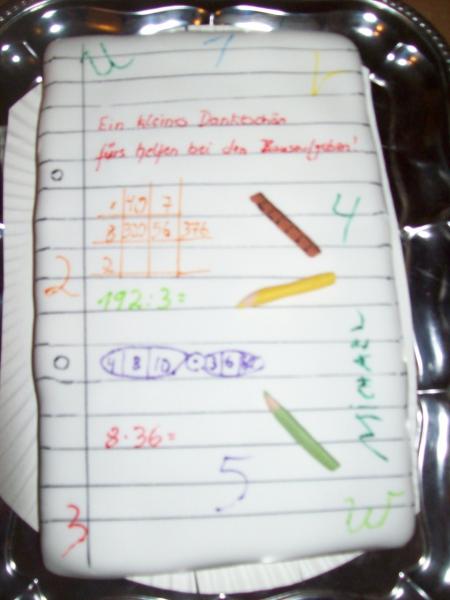 Ein kleines Dankeschön
fürs helfen bei den Hausaufgaben!
. 40 7
8 320 56 376
2
4
2
192:3=
4 8 10
3 6
MICHAEL
8·36=
5
3
W